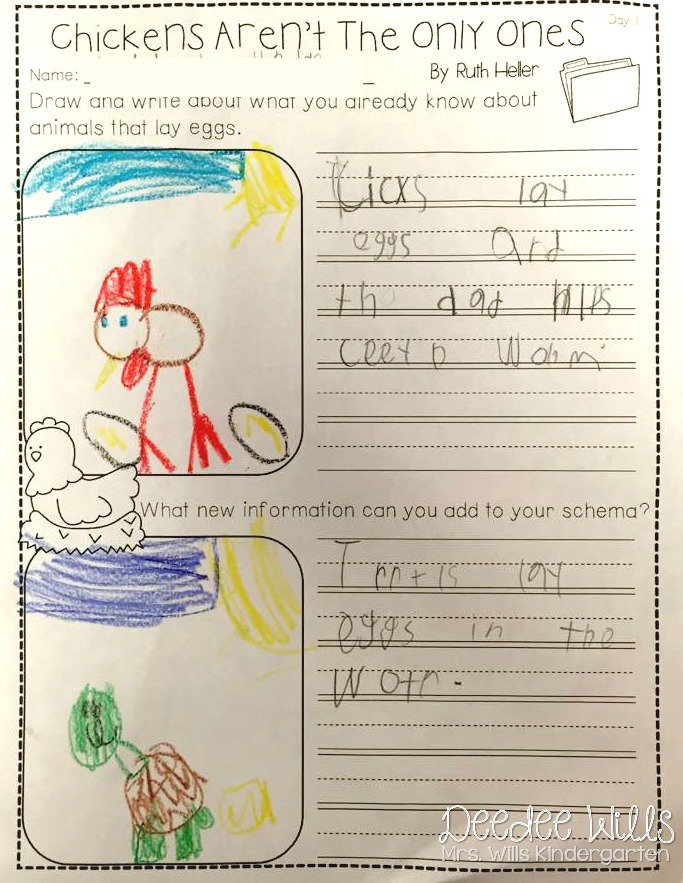 Day 1
Chickens Aren't The Only Ones
Name:
By Ruth Heller
Draw and write about what you already know about
animals that lay eggs.
Kicks lay
eggs And
the dad
Worm
What new information can you add to your schema?
lay
eggs in the
Wotr.
Deedee Wills
Mrs. Wills Kindergarten